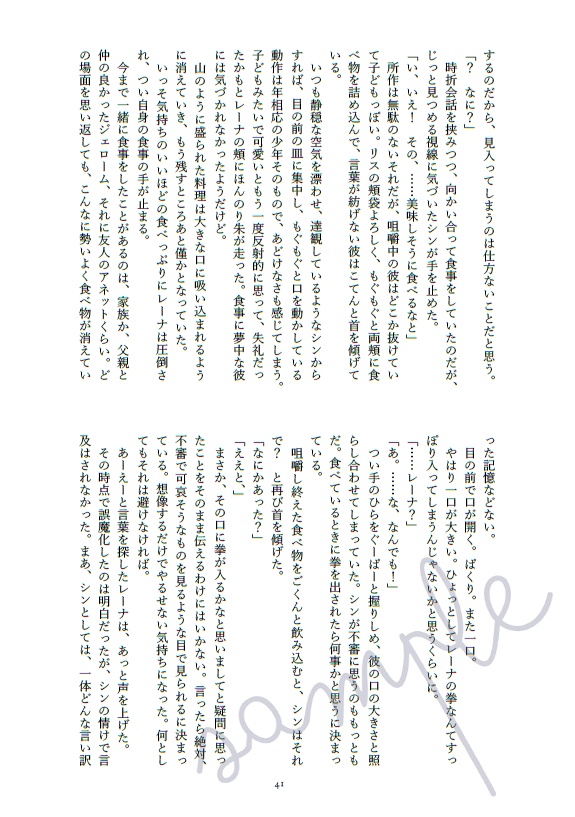 するのだから、見入ってしまうのは仕方ないことだと思う。
「？　なに？」
　時折会話を挟みつつ、向かい合って食事をしていたのだが、
じっと見つめる視線に気づいたシンが手を止めた。
「い、いえ！　その、……美味しそうに食べるなと」
　所作は無駄のないそれだが、咀嚼中の彼はどこか抜けてい
て子どもっぽい。リスの頬袋よろしく、もぐもぐと両頬に食
べ物を詰め込んで、言葉が紡げない彼はこてんと首を傾げて
いる。
　いつも静穏な空気を漂わせ、達観しているようなシンから
すれば、目の前の皿に集中し、もぐもぐと口を動かしている
動作は年相応の少年そのもので、あどけなさも感じてしまう。
子どもみたいで可愛いともう一度反射的に思って、失礼だっ
たかもとレーナの頬にほんのり朱が走った。食事に夢中な彼
には気づかれなかったようだけど。
　山のように盛られた料理は大きな口に吸い込まれるよう
に消えていき、もう残すところあと僅かとなっていた。
　いっそ気持ちのいいほどの食べっぷりにレーナは圧倒さ
れ、つい自身の食事の手が止まる。
　今まで一緒に食事をしたことがあるのは、家族か、父親と
仲の良かったジェローム、それに友人のアネットくらい。ど
の場面を思い返しても、こんなに勢いよく食べ物が消えてい
った記憶などない。
　目の前で口が開く。ぱくり。また一口。
　やはり一口が大きい。ひょっとしてレーナの拳なんてすっ
ぽり入ってしまうんじゃないかと思うくらいに。
「……レーナ？」
「あ。……な、なんでも！」
　つい手のひらをぐーぱーと握りしめ、彼の口の大きさと照
らし合わせてしまっていた。シンが不審に思うのももっとも
だ。食べているときに拳を出されたら何事かと思うに決まっ
ている。
　咀嚼し終えた食べ物をごくんと飲み込むと、シンはそれ
で？　と再び首を傾げた。
「なにかあった？」
「ええと、」
　まさか、その口に拳が入るかなと思いましてと疑問に思っ
たことをそのまま伝えるわけにはいかない。言ったら絶対、
不審で可哀そうなものを見るような目で見られるに決まっ
ている。想像するだけでやるせない気持ちになった。何とし
てもそれは避けなければ。
　あーえーと言葉を探したレーナは、あっと声を上げた。
　その時点で誤魔化したのは明白だったが、シンの情けで言
及はされなかった。まあ、シンとしては、一体どんな言い訳
sample
41